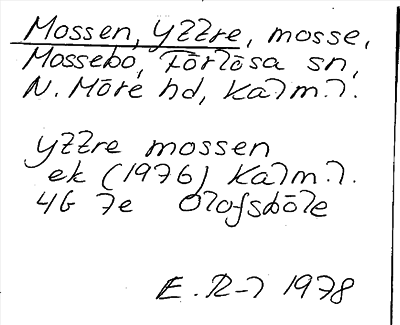 Mossen, Yttre, mosse,
Mossebo, Förlösa sn,
N. Möre hd, Kalm.l.
Yttre mossen
ek (1976) Kalm.l.
4G 7e Olofsböle
E. R-l 1978